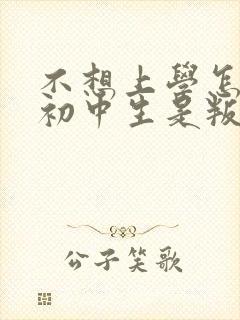 不想上學怎
初中生是叛
公子笑歌